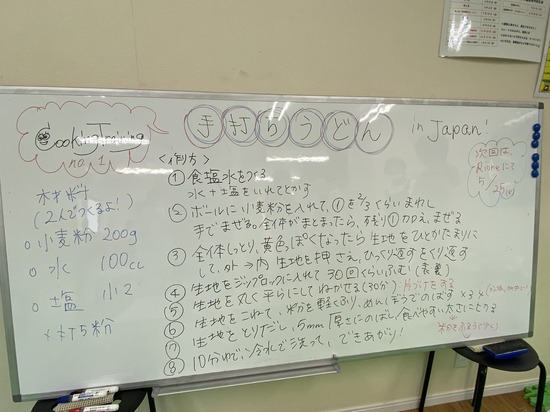 Cooking Training
no. 1
手打ちうどん in Japan!
次回は
5/25
材料
(2人でつくるよ!)
○小麦粉 200g
○水 100cc
○塩 小2
×打ち粉
<作り方>
① 食塩水をつくる
水+塩をいれてとかす
② ボールに小麦粉を入れて、①を2/3くらいまわし
手でまぜる。全体がまとまったら、残り①加え、まぜる
③ 全体しっとり、黄色っぽくなったら生地をひとかたまりに
して、外→内 生地を押さえ、ひっくり返すをくり返す
④ 生地をジップロックに入れて30回くらいふむ(表裏)
⑤ 生地を丸く平らにしてねかせる(30分) 片づけをする
⑥ 生地をこねて、粉を軽くふり、めんぼうでのばす ×3
⑦ 生地をとりだし、5mm厚さにのばし食べやすい太さにとる
⑧ 10分ゆで、冷水で洗って、できあがり!